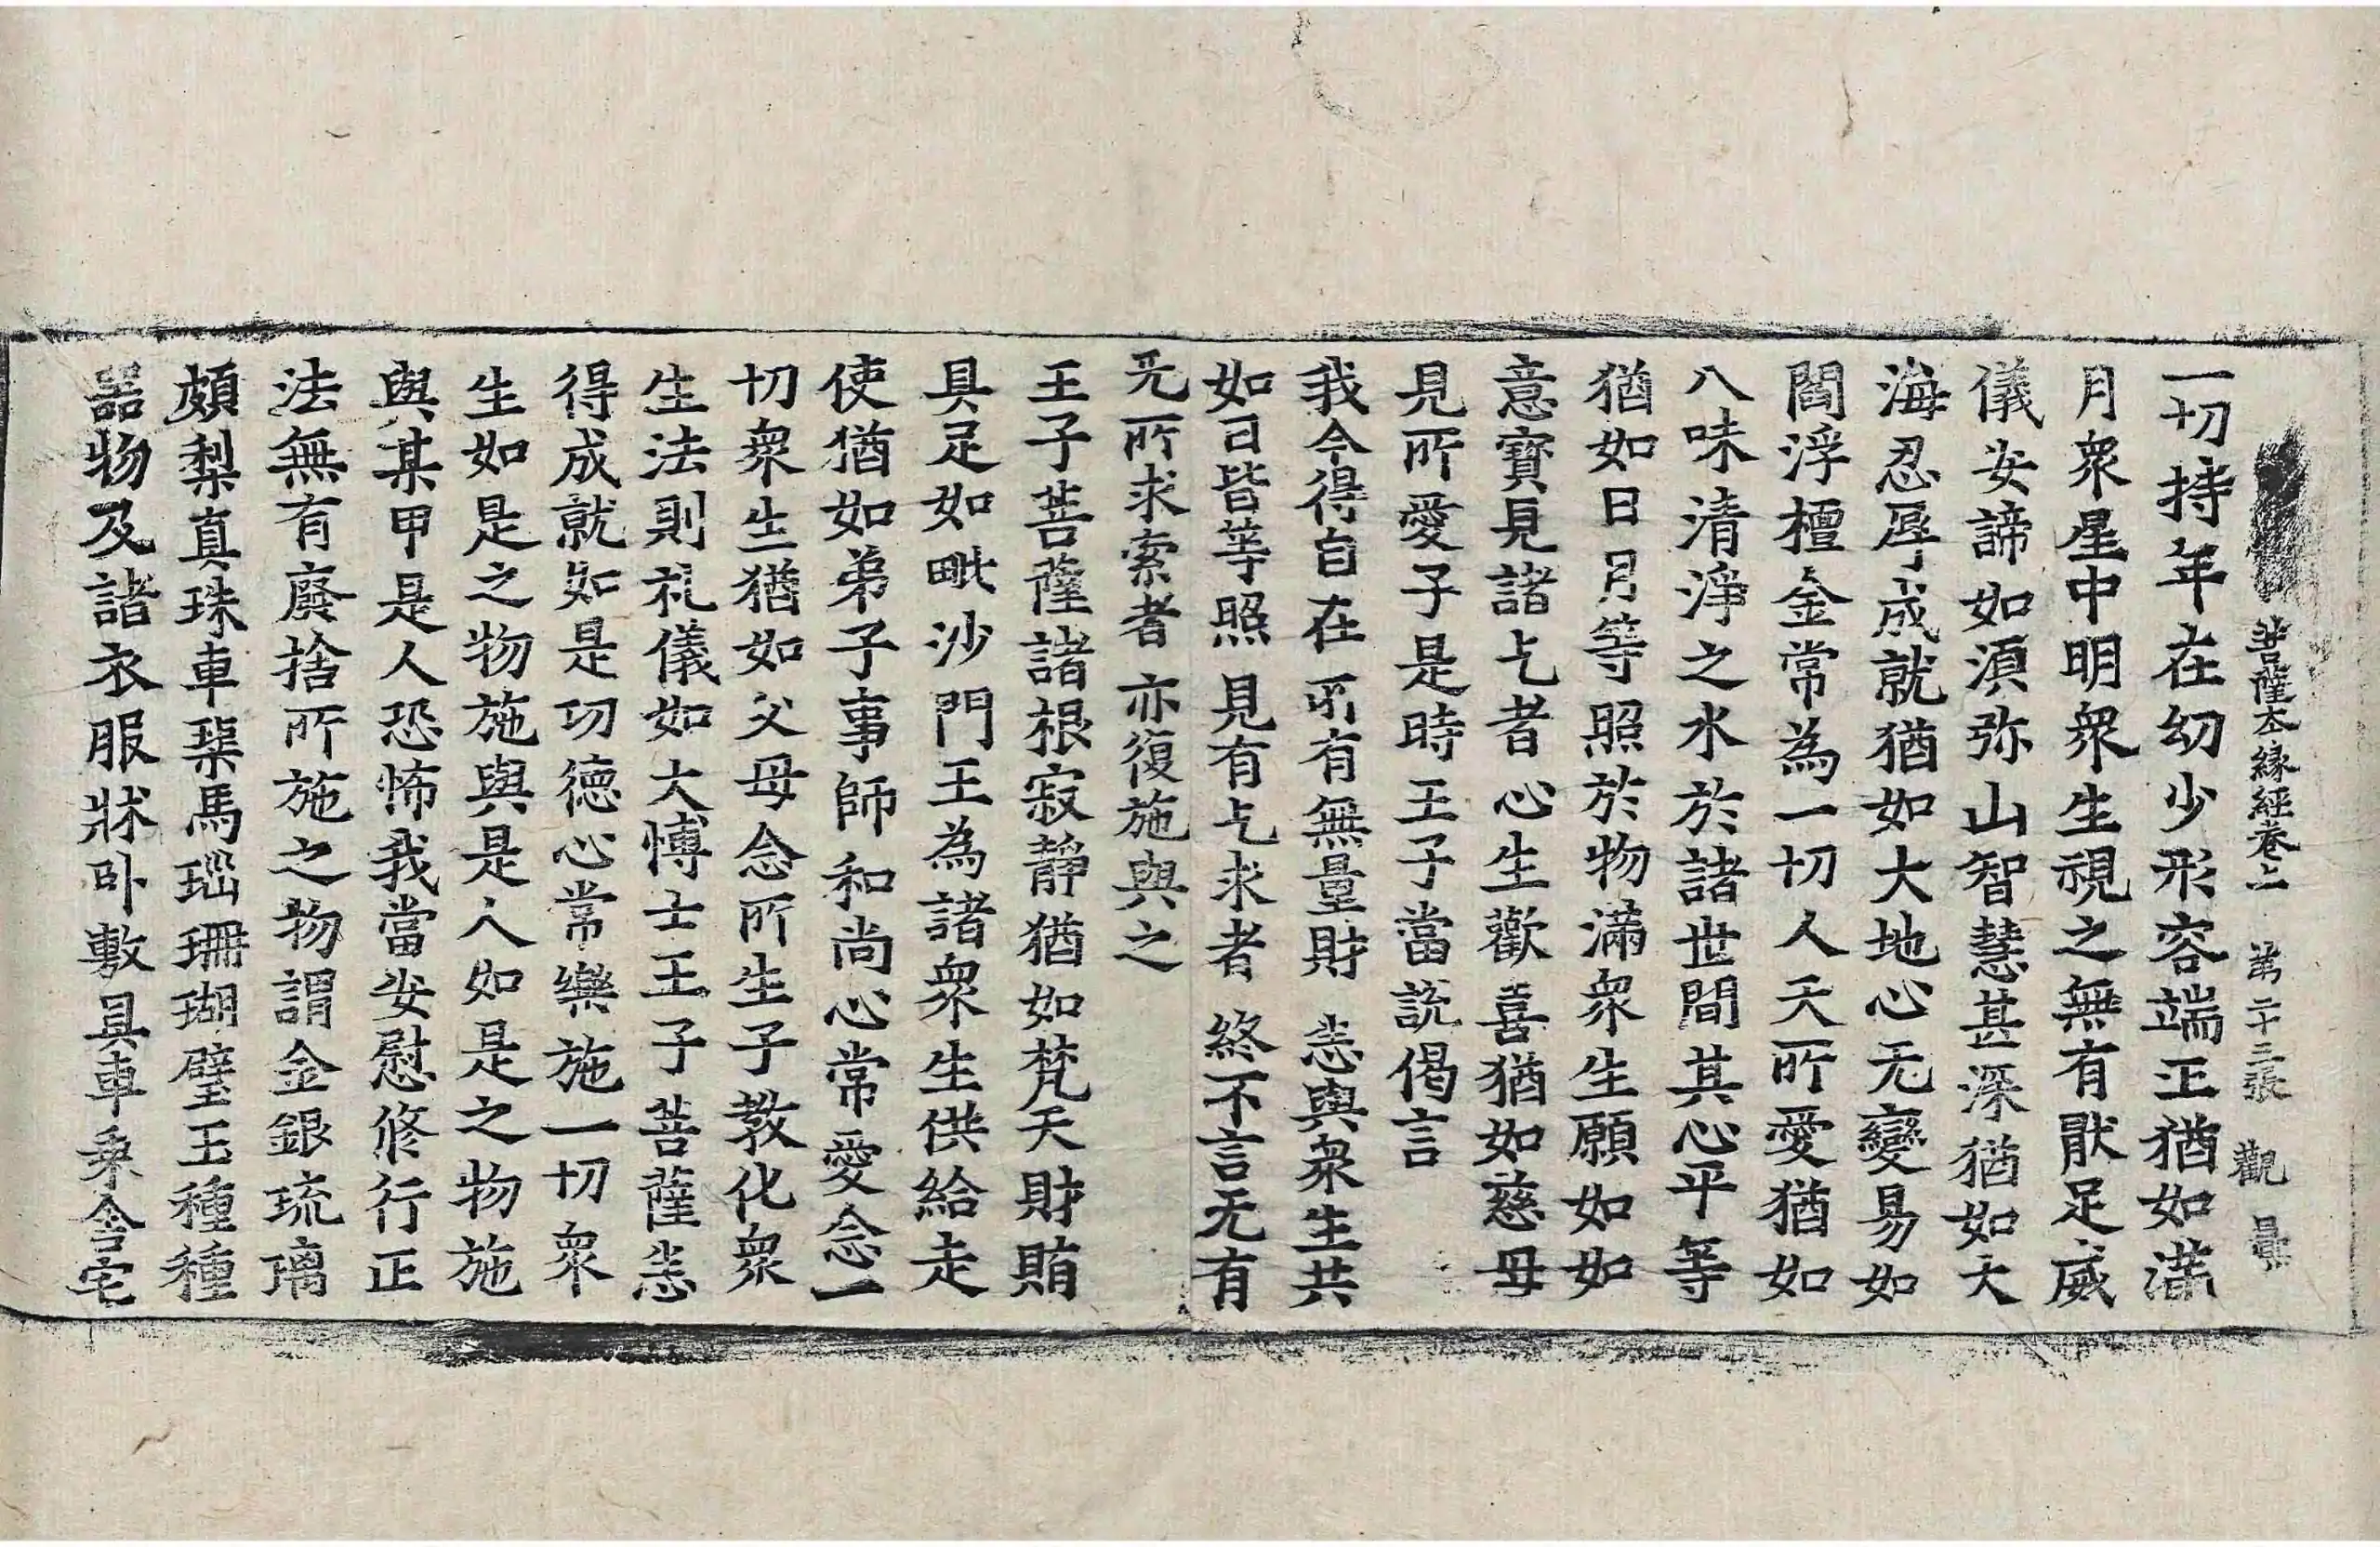 菩薩本緣經卷上 第二十三張 觀
一切持年在幼少形容端正猶如滿
月衆星中明衆生視之無有猒足威
儀安諦如湏弥山智慧甚深猶如大
海忍辱成就猶如大地心无變易如
閻浮檀金常為一切人天所愛猶如
八味清淨之水於諸世間其心平等
猶如日月等照於物滿衆生願如如
意寶見諸乞者心生歡喜猶如慈母
見所愛子是時王子當說偈言
我今得自在 所有無量財 恙與衆生共
如日皆等照 見有乞求者 終不言无有
无所求索者 亦復施與之
王子菩薩諸根寂靜猶如梵天財賄
具足如毗沙門王為諸衆生供給走
使猶如弟子事師和尚心常愛念一
切衆生猶如父母念所生子教化衆
生法則礼儀如大博士王子菩薩恙
得成就如是功德心常樂施一切衆
生如是之物施與是人如是之物施
與某甲是人恐怖我當安慰修行正
法無有廢捨所施之物謂金銀琉璃
頗梨真珠車𤦲馬瑙珊瑚璧玉種種
器物及諸衣服牀卧敷具車乘舍宅